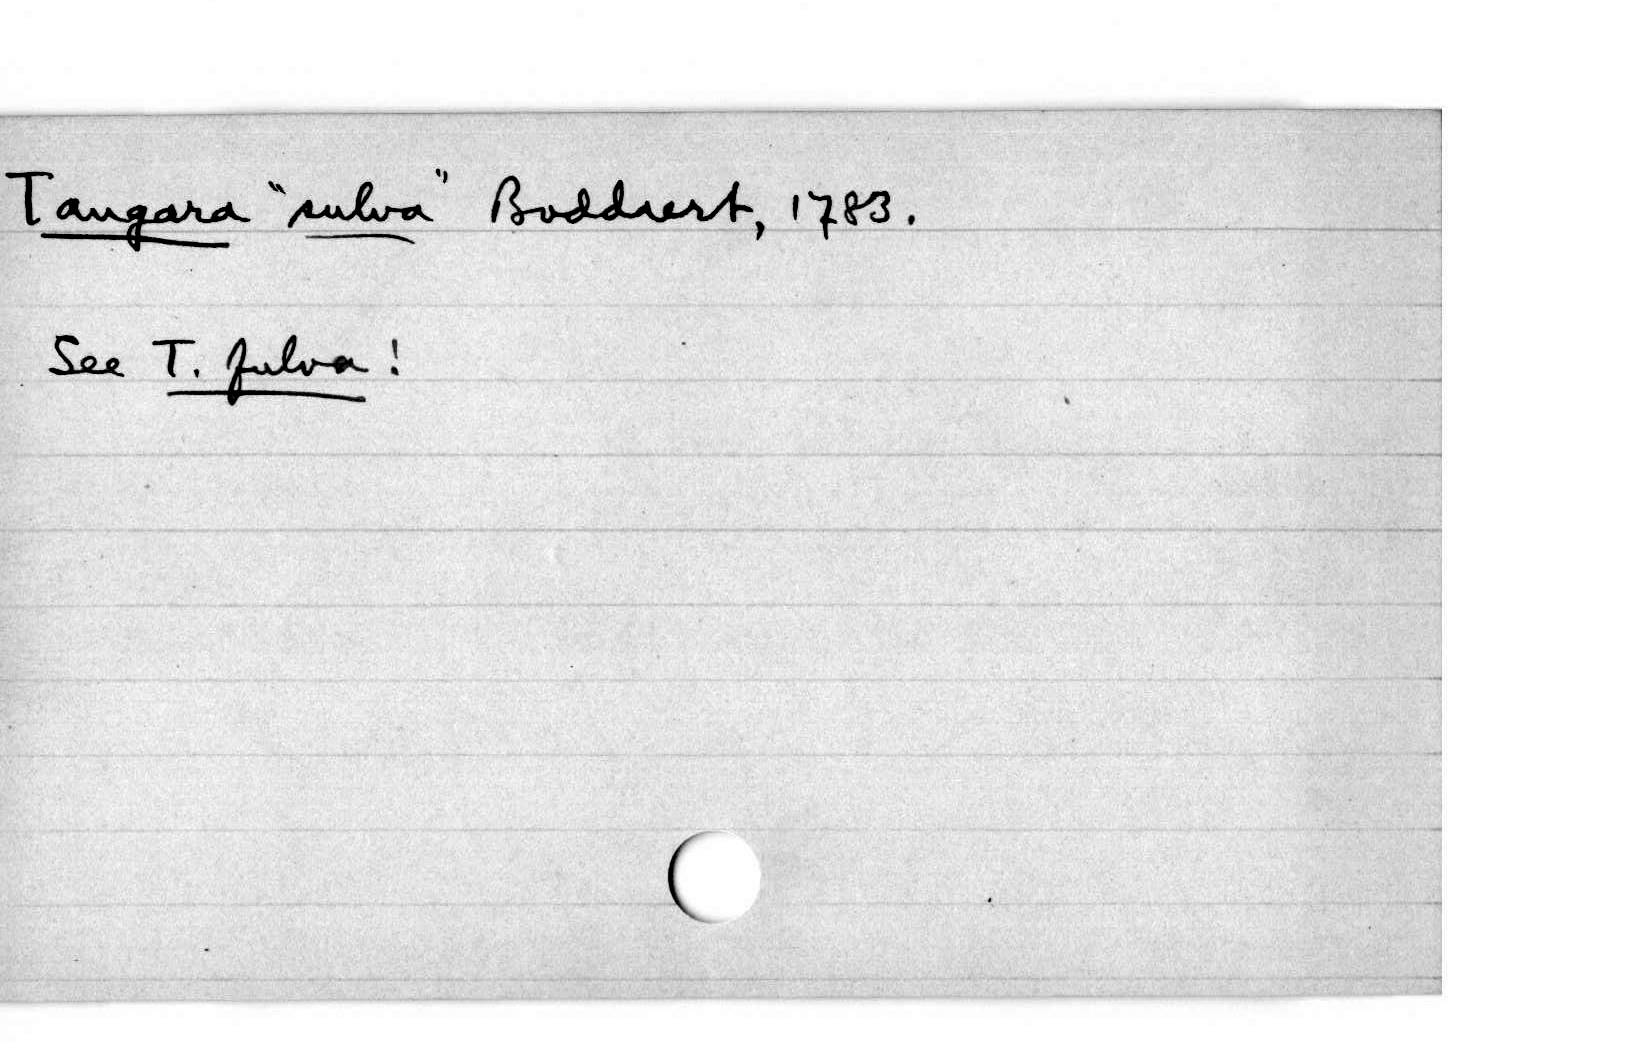 Tangara "sulva" Boddaert, 1783.
See T. fulva!